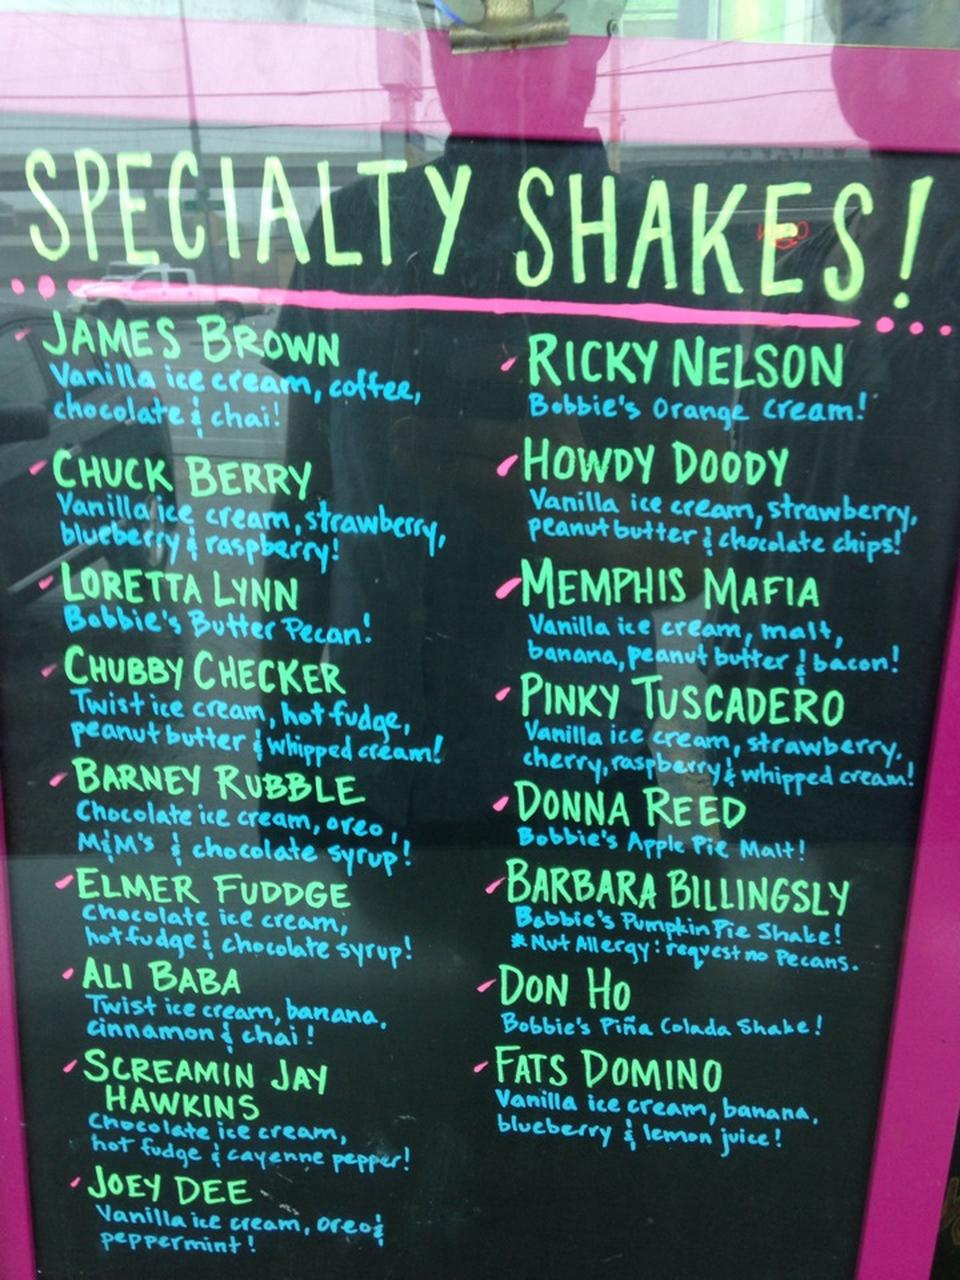 SPECIALTY SHAKES!
JAMES BROWN
Vanilla ice cream, coffee,
chocolate & chai!
CHUCK BERRY
Vanilla ice cream, strawberry,
blueberry & raspberry!
LORETTA LYNN
Bobbie's Butter Pecan!
CHUBBY CHECKER
Twist ice cream, hot fudge,
peanut butter & whipped cream!
BARNEY RUBBLE
Chocolate ice cream, oreo,
M&M's & chocolate syrup!
ELMER FUDDGE
Chocolate ice cream,
hot fudge & chocolate syrup!
ALI BABA
Twist ice cream, banana,
cinnamon & chai!
SCREAMIN JAY
HAWKINS
Chocolate ice cream,
hot fudge & cayenne pepper!
JOEY DEE
Vanilla ice cream, oreo &
peppermint!
RICKY NELSON
Bobbie's Orange Cream!
HOWDY DOODY
Vanilla ice cream, strawberry,
peanut butter & chocolate chips!
MEMPHIS MAFIA
Vanilla ice cream, malt,
banana, peanut butter & bacon!
PINKY TUSCADERO
Vanilla ice cream, strawberry,
cherry, raspberry & whipped cream!
DONNA REED
Bobbie's Apple Pie Malt!
BARBARA BILLINGSLY
Bobbie's Pumpkin Pie Shake!
*Nut Allergy: request no Pecans.
DON HO
Bobbie's Piña Colada Shake!
FATS DOMINO
Vanilla ice cream, banana,
blueberry & lemon juice!